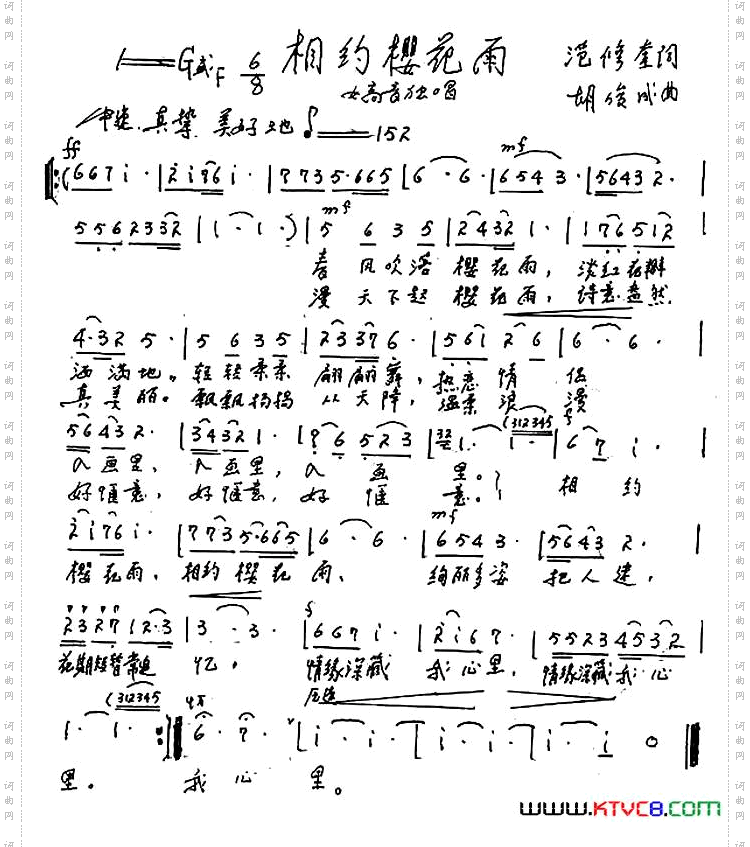 1=G或F 6/8 相约樱花雨 范修奎词
女高音独唱 胡俊成曲
中速 真挚 美好地 ♪=152
ff
mf
(6 6 7 i· | 2 i 7 6 i· | 7 7 3 5·6 6 5 | 6· 6· | 6 5 4 3· | 5 6 4 3 2· |
mf
5 5 6 2 3 3 2 | 1· 1·) | 5 6 3 5 | 2 4 3 2 1· | 1 7 6 5 1 2 |
春 风吹落 樱花雨, 淡红花瓣
漫 天下起 樱花雨, 诗意盎然
4·3 2 5· | 5 6 3 5 | 2 3 3 7 6· | 5 6 i 2 6 | 6· 6· |
洒 满地。 轻轻柔柔 翩翩舞, 热恋 情侣
真美丽。 飘飘扬扬 从天降, 温柔 浪漫
(3 1 2 3 4 5
5 6 4 3 2· | 3 4 3 2 1· | 1· 6 5 2 3 | 1· 1· | 6 7 i· |
入画里, 入画里, 入 画 里。 相 约
好惬意, 好惬意, 好 惬 意。
mf
2 i 7 6 i· | 7 7 3 5·6 6 5 | 6· 6· | 6 5 4 3· | 5 6 4 3 2· |
樱花雨, 相约樱花 雨, 绚丽多姿 把人迷,
2 3 2 7 1 2·3 | 3· 3· | 6 6 7 i· | 2 i 6 7· | 5 5 2 3 4 5 3 2 |
花期短暂常追 忆, 情缘深藏 我心里, 情缘深藏我心
(3 1 2 3 4 5
1· 1· :| 6· 7· | i· i· | i· i· | i· i· | i· i 0 ||
里。 我 心 里。
www.KTVC8.com
词曲网